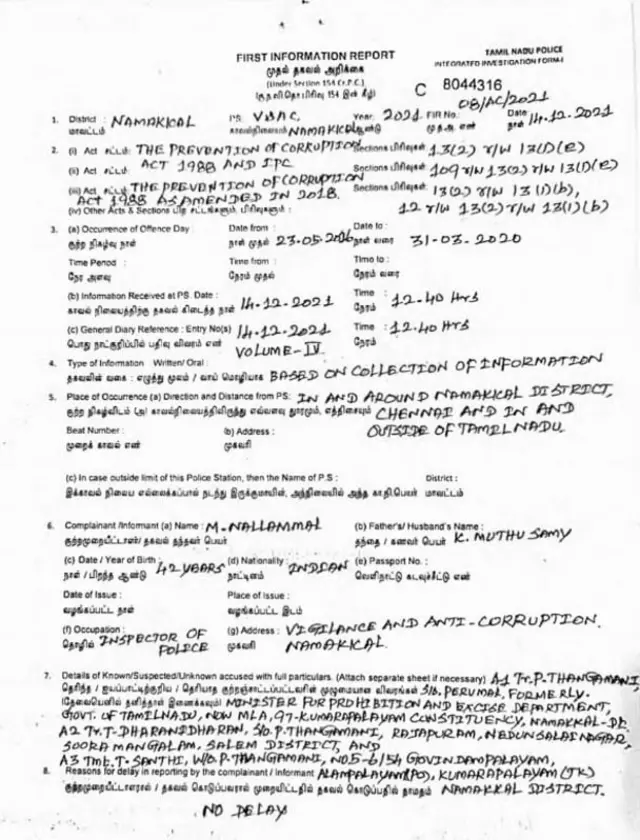 FIRST INFORMATION REPORT
TAMIL NADU POLICE
முதல் தகவல் அறிக்கை
INTEGRATED INVESTIGATION FORM-I
(Under Section 154 Cr.P.C.)
(கு.ந.வி.தொ.பிரிவு 154 இன் கீழ்)
C 8044316
08/AC/2021
1. District : NAMAKKAL P.S. VSAC, Year: 2021 FIR No.: Date 14.12.2021
மாவட்டம் காவல்நிலையம் NAMAKKAL ஆண்டு மு.த.அ. எண் நாள்
2. (i) Act சட்டம்: THE PREVENTION OF CORRUPTION Sections பிரிவுகள்: 13(2) r/w 13(1)(e)
(ii) Act சட்டம்: ACT 1988 AND IPC Sections பிரிவுகள்: 109 r/w 13(2) r/w 13(1)(e)
(iii) Act சட்டம்: THE PREVENTION OF CORRUPTION Sections பிரிவுகள்: 13(2) r/w 13(1)(b),
ACT 1988 AS AMENDED IN 2018.
(iv) Other Acts & Sections பிற சட்டங்களும், பிரிவுகளும் : 12 r/w 13(2) r/w 13(1)(b)
3. (a) Occurrence of Offence Day : Date from : Date to :
குற்ற நிகழ்வு நாள் நாள் முதல் 23.05.2016 நாள் வரை 31-03-2020
Time Period : Time from : Time to :
நேர அளவு நேரம் முதல் நேரம் வரை
(b) Information Received at PS. Date : 14-12-2021 Time : 12.40 Hrs
காவல் நிலையத்திற்கு தகவல் கிடைத்த நாள் நேரம்
(c) General Diary Reference : Entry No(s) 14.12.2021 Time : 12.40 Hrs
பொது நாட்குறிப்பில் பதிவு விவரம் எண் VOLUME-IV நேரம்
4. Type of Information Written/Oral :
தகவலின் வகை : எழுத்து மூலம் / வாய் மொழியாக BASED ON COLLECTION OF INFORMATION
5. Place of Occurrence (a) Direction and Distance from PS: IN AND AROUND NAMAKKAL DISTRICT,
குற்ற நிகழ்விடம் (அ) காவல்நிலையத்திலிருந்து எவ்வளவு தூரமும், எத்திசையும் CHENNAI AND IN AND
Beat Number : (b) Address : OUTSIDE OF TAMILNADU.
முறைக் காவல் எண் முகவரி
(c) In case outside limit of this Police Station, then the Name of P.S : District :
இக்காவல் நிலைய எல்லைக்கப்பால் நடந்து இருக்குமாயின், அந்நிலையில் அந்த கா.நி.பெயர் மாவட்டம்
6. Complainant /Informant (a) Name : M. NALLAMMAL (b) Father's/ Husband's Name :
குற்றமுறையீட்டாளர்/ தகவல் தந்தவர் பெயர் தந்தை / கணவர் பெயர் K. MUTHU SAMY
(c) Date / Year of Birth : 42 YEARS (d) Nationality : INDIAN (e) Passport No. :
நாள் / பிறந்த ஆண்டு நாட்டினம் வெளிநாட்டு கடவுச்சீட்டு எண்
Date of Issue : Place of Issue :
வழங்கப்பட்ட நாள் வழங்கப்பட்ட இடம்
(f) Occupation : INSPECTOR OF (g) Address : VIGILANCE AND ANTI-CORRUPTION.
தொழில் POLICE முகவரி NAMAKKAL.
7. Details of Known/Suspected/Unknown accused with full particulars. (Attach separate sheet if necessary) A1 Tr.P.THANGAMANI
தெரிந்த / ஐயப்பாட்டிற்குரிய / தெரியாத குற்றஞ்சாட்டப்பட்டவரின் முழுமையான விவரங்கள் S/o. PERUMAL, FORMERLY.
(தேவையெனில் தனித்தாள் இணைக்கவும்) MINISTER FOR PROHIBITION AND EXCISE DEPARTMENT,
GOVT. OF TAMILNADU, NOW MLA, 97-KUMARAPALAYAM CONSTITUENCY, NAMAKKAL-DT.
A2 Tr.T-DHARANIDHARAN, S/o. P. THANGAMANI, RAJAPURAM, NEDUNSALAI NAGAR,
SOORA MANGALAM, SALEM DISTRICT, AND
A3 Tmt. T. SANTHI, W/o. P. THANGAMANI, NO 5-6/154 GOVINDAMPALAYAM,
8. Reasons for delay in reporting by the complainant / Informant ALAMPALAYAM(PO), KUMARAPALAYAM (TK)
குற்றமுறையீட்டாளரால் / தகவல் கொடுப்பவரால் முறையிட்டதில் தகவல் கொடுப்பதில் தாமதம் NAMAKKAL DISTRICT.
NO DELAY